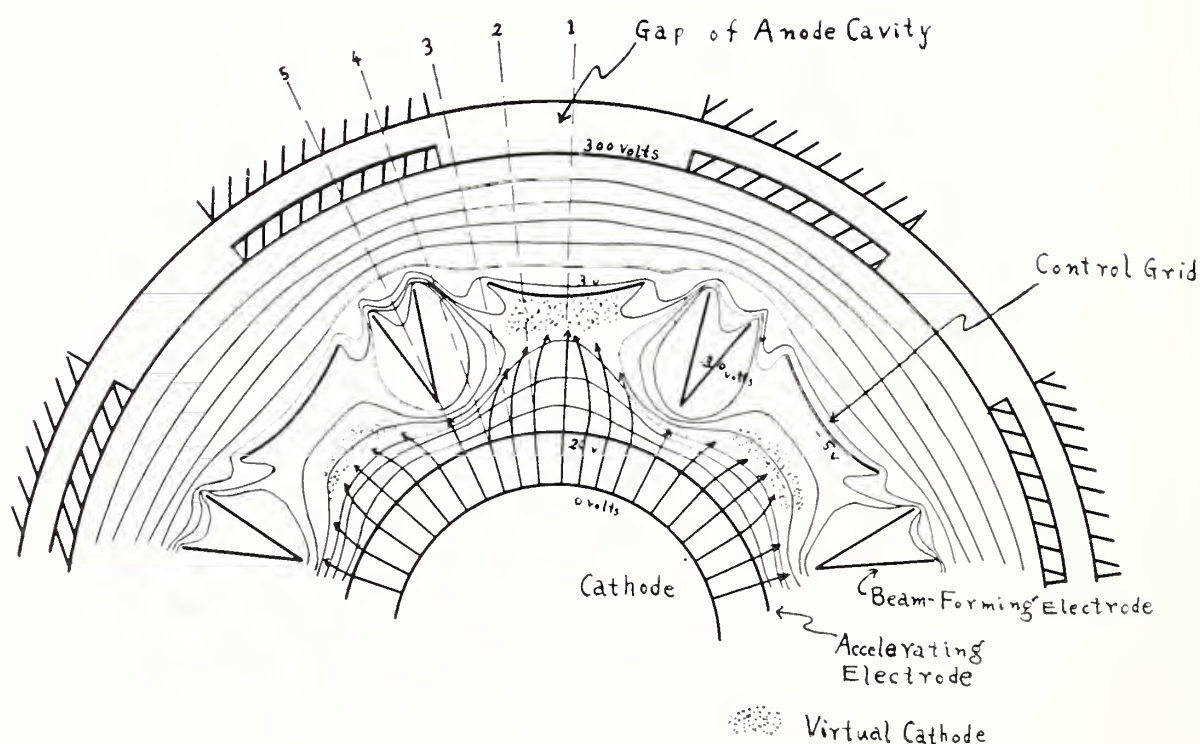 5
4
3
2
1
Gap of Anode Cavity
300 volts
Control Grid
3 v
volts
5v
0 volts
Cathode
Beam-Forming Electrode
Accelerating
Electrode
Virtual Cathode